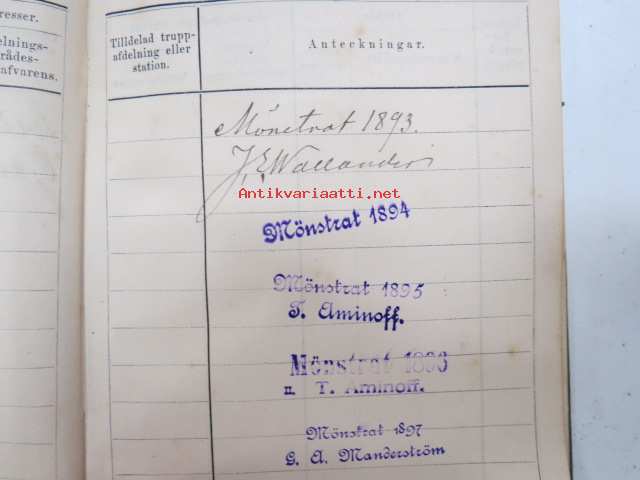 resser.
elnings-
rådes-
afvarens.
Tilldelad trupp-
afdelning eller
station.
Anteckningar.
Mönstrat 1893.
J. E. Wallander
Antikvariaatti.net
Mönstrat 1894
Mönstrat 1895
T. Aminoff.
Mönstrat 1896
u. T. Aminoff.
Mönstrat 1897
G. A. Manderström